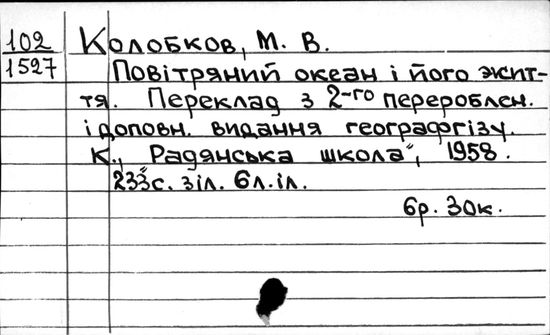 102
1527
Колобков, М. В.
Повітряний океан і його жит-
тя. Переклад з 2-го перероблен.
і доповн. видання географгізу.
К., „Радянська школа", 1958.
233с. зіл. 6л.іл.
6р. 30к.